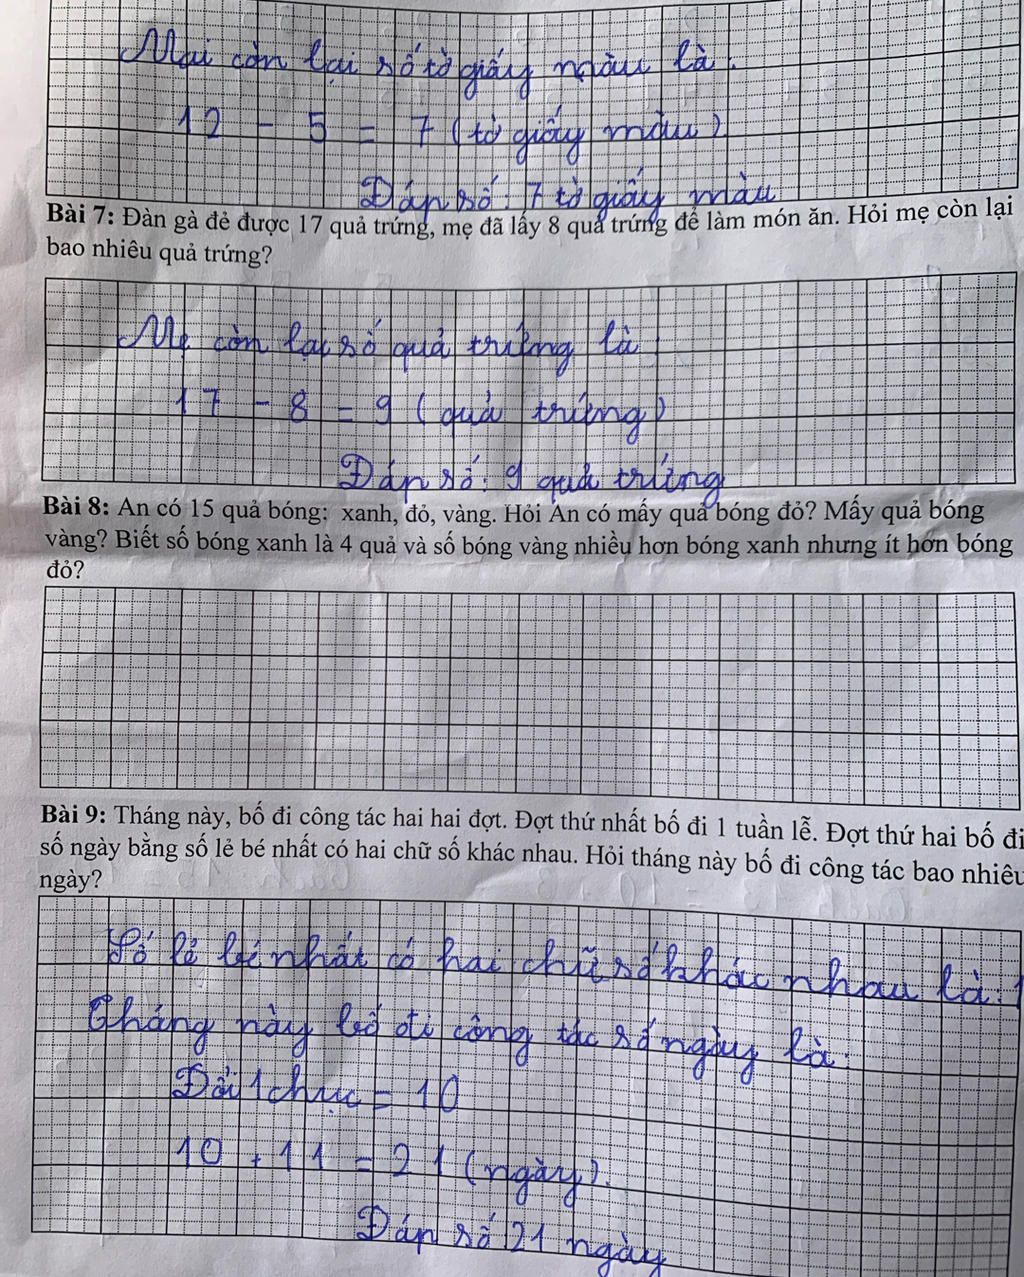 Mai còn lại số tờ giấy màu là:
12 - 5 = 7 (tờ giấy màu)
Đáp số: 7 tờ giấy màu
Bài 7: Đàn gà đẻ được 17 quả trứng, mẹ đã lấy 8 quả trứng để làm món ăn. Hỏi mẹ còn lại
bao nhiêu quả trứng?
Mẹ còn lại số quả trứng là:
17 - 8 = 9 (quả trứng)
Đáp số: 9 quả trứng
Bài 8: An có 15 quả bóng: xanh, đỏ, vàng. Hỏi An có mấy quả bóng đỏ? Mấy quả bóng
vàng? Biết số bóng xanh là 4 quả và số bóng vàng nhiều hơn bóng xanh nhưng ít hơn bóng
đỏ?
Bài 9: Tháng này, bố đi công tác hai hai đợt. Đợt thứ nhất bố đi 1 tuần lễ. Đợt thứ hai bố đi
số ngày bằng số lẻ bé nhất có hai chữ số khác nhau. Hỏi tháng này bố đi công tác bao nhiêu
ngày?
Số lẻ bé nhất có hai chữ số khác nhau là: 1
Tháng này bố đi công tác số ngày là:
Đổi 1 chục = 10
10 + 11 = 21 (ngày).
Đáp số 21 ngày